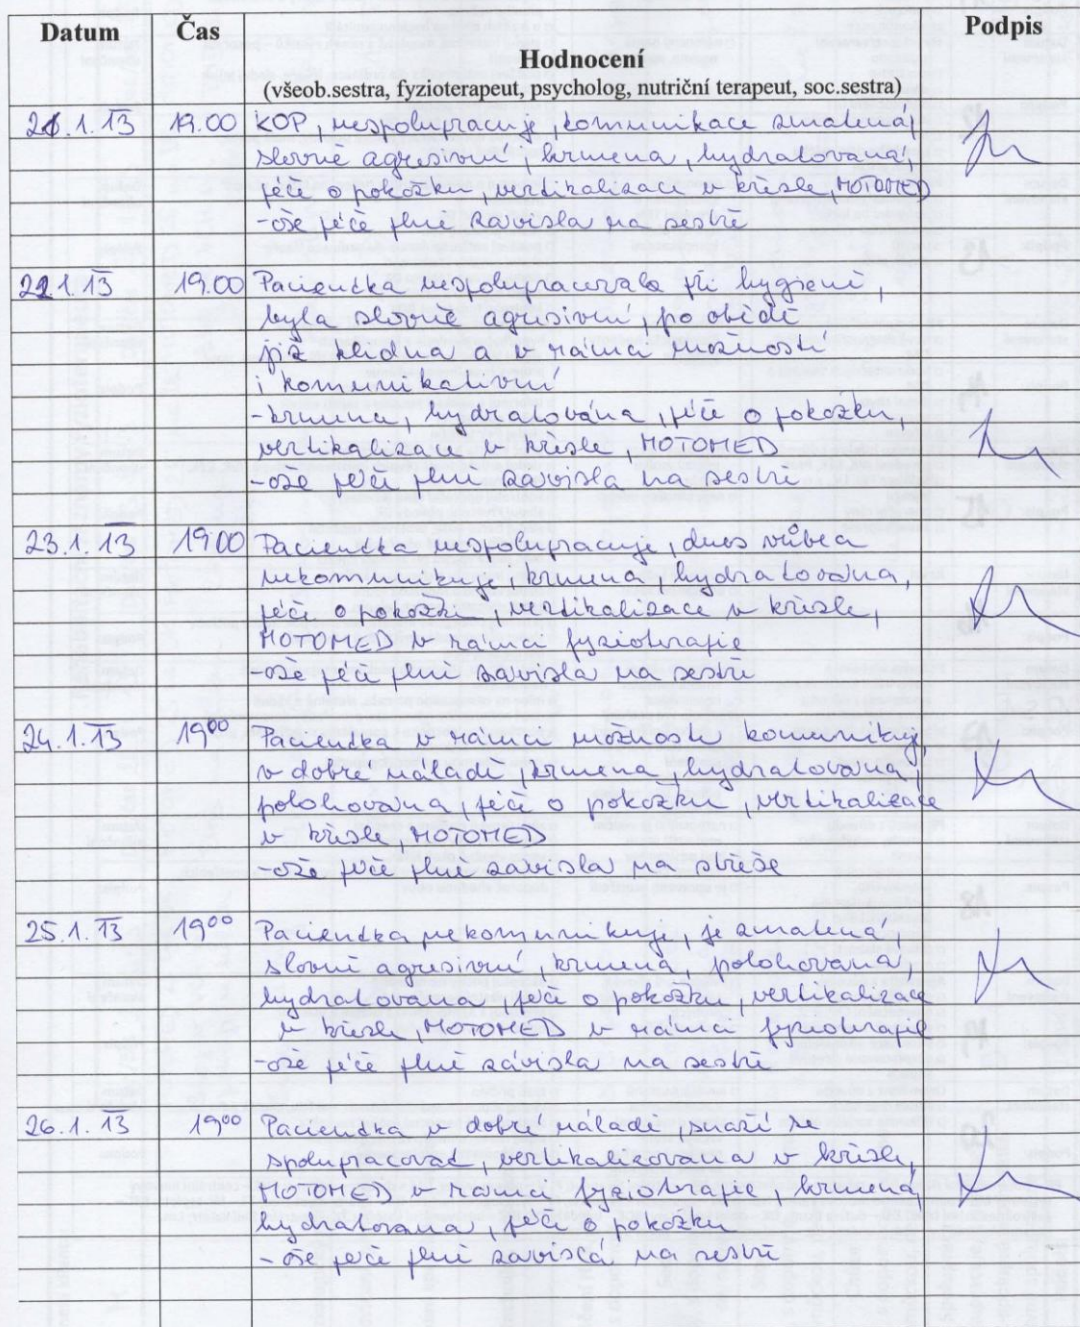 Datum Čas Hodnocení Podpis
(všeob.sestra, fyzioterapeut, psycholog, nutriční terapeut, soc.sestra)
21.1.13 19.00 KOP, nespolupracuje, komunikace zmatená,
slovně agresivní, krmena, hydratována,
péče o pokožku, vertikalizace v křesle, MOTOMED
-oše péče plně závislá na sestře
22.1.13 19.00 Pacientka nespolupracovala při hygieně,
byla slovně agresivní, po obědě
již klidna a v rámci možností
i komunikativní
-krmena, hydratována, péče o pokožku,
vertikalizace v křesle, MOTOMED
-oše péči plně závislá na sestře
23.1.13 19.00 Pacientka nespolupracuje, dnes vůbec
nekomunikuje, krmena, hydratována,
péče o pokožku, vertikalizace v křesle,
MOTOMED v rámci fyzioterapie
-oše péči plně závislá na sestře
24.1.13 19⁰⁰ Pacientka v rámci možností komunikuje,
v dobré náladě, krmena, hydratována,
polohována, péče o pokožku, vertikalizace
v křesle, MOTOMED
-oše péče plně závislá na
25.1.13 19⁰⁰ Pacientka nekomunikuje, je zmatená,
slovně agresivní, krmena, polohována,
hydratována, péče o pokožku, vertikalizace
v křesle, MOTOMED v rámci fyzioterapie
-oše péče plně závislá na sestře
26.1.13 19⁰⁰ Pacientka v dobré náladě, snaží se
spolupracovat, vertikalizována v křesle,
MOTOMED v rámci fyzioterapie, krmena,
hydratována, péče o pokožku
-oše péče plně závislá na sestře